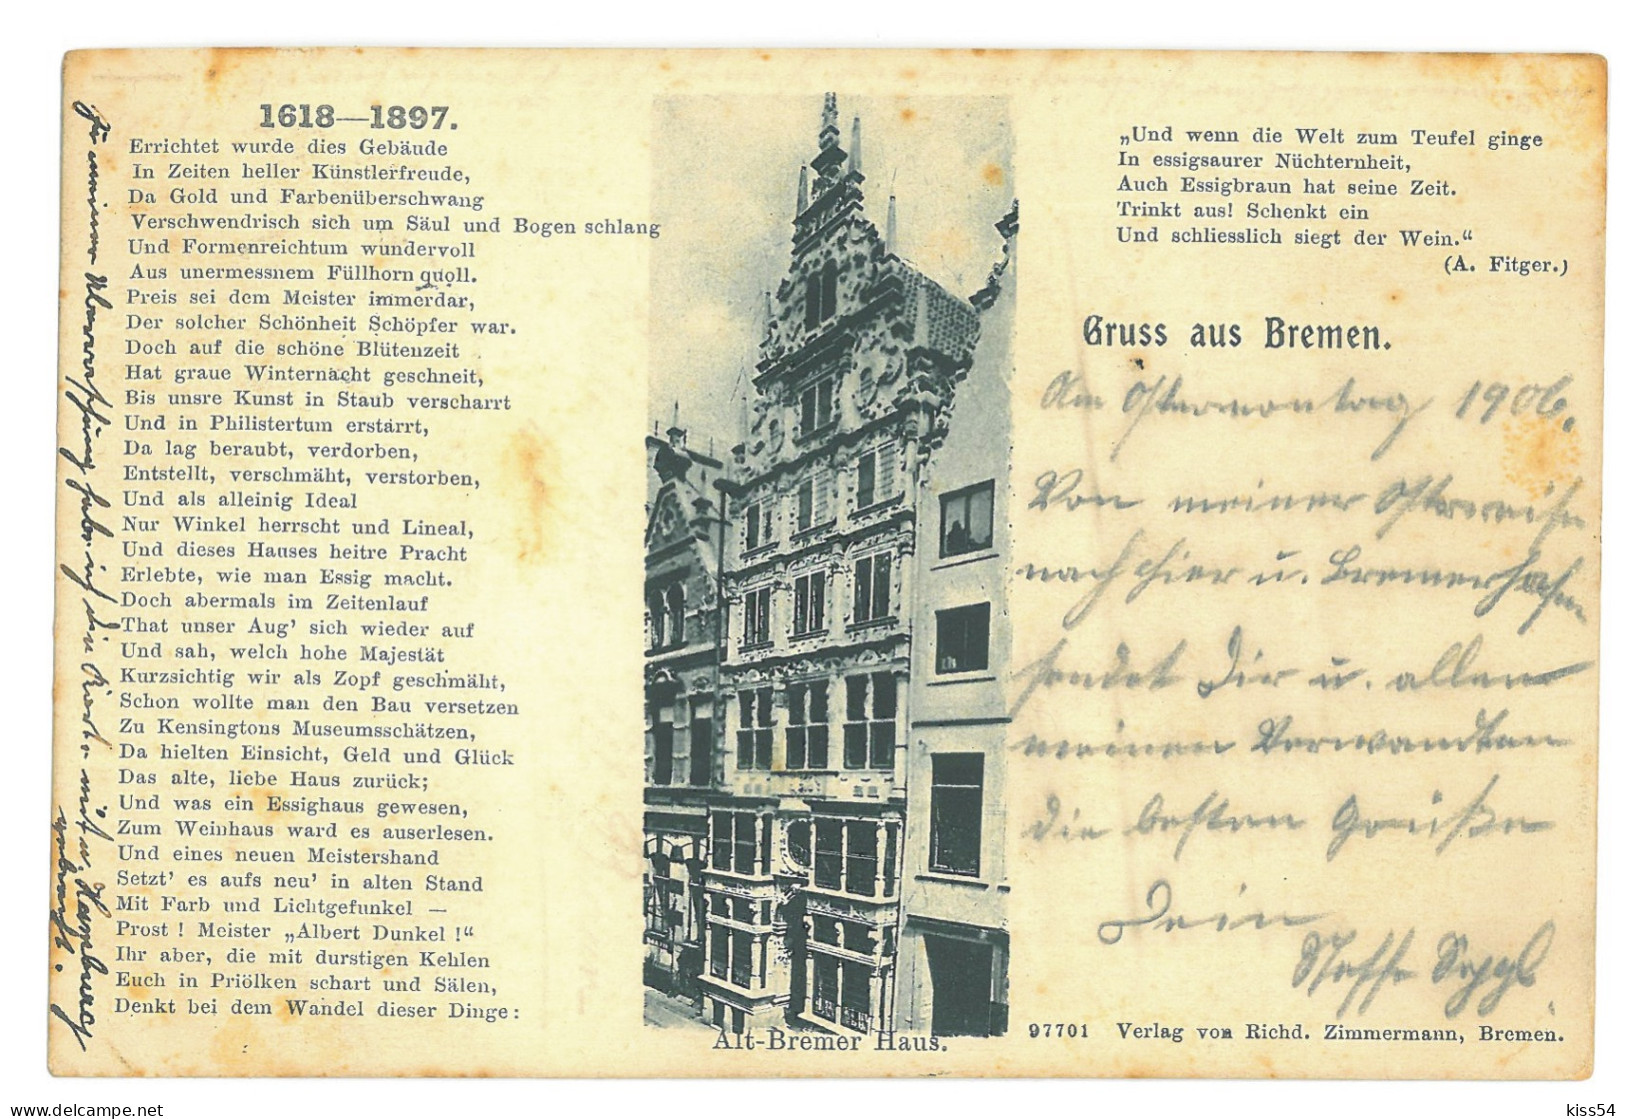 1618—1897.
Errichtet wurde dies Gebäude
In Zeiten heller Künstlerfreude,
Da Gold und Farbenüberschwang
Verschwendrisch sich um Säul und Bogen schlang
Und Formenreichtum wundervoll
Aus unermessnem Füllhorn quoll.
Preis sei dem Meister immerdar,
Der solcher Schönheit Schöpfer war.
Doch auf die schöne Blütenzeit
Hat graue Winternacht geschneit,
Bis unsre Kunst in Staub verscharrt
Und in Philistertum erstarrt,
Da lag beraubt, verdorben,
Entstellt, verschmäht, verstorben,
Und als alleinig Ideal
Nur Winkel herrscht und Lineal,
Und dieses Hauses heitre Pracht
Erlebte, wie man Essig macht.
Doch abermals im Zeitenlauf
That unser Aug’ sich wieder auf
Und sah, welch hohe Majestät
Kurzsichtig wir als Zopf geschmäht,
Schon wollte man den Bau versetzen
Zu Kensingtons Museumsschätzen,
Da hielten Einsicht, Geld und Glück
Das alte, liebe Haus zurück;
Und was ein Essighaus gewesen,
Zum Weinhaus ward es auserlesen.
Und eines neuen Meistershand
Setzt’ es aufs neu’ in alten Stand
Mit Farb und Lichtgefunkel —
Prost ! Meister „Albert Dunkel !“
Ihr aber, die mit durstigen Kehlen
Euch in Priölken schart und Sälen,
Denkt bei dem Wandel dieser Dinge:
„Und wenn die Welt zum Teufel ginge
In essigsaurer Nüchternheit,
Auch Essigbraun hat seine Zeit.
Trinkt aus! Schenkt ein
Und schliesslich siegt der Wein.“
(A. Fitger.)
Gruss aus Bremen.
Am Ostermontag 1906.
Von meiner Osterreise
nach hier u. Bremerhafen
sendet Dir u. allen
meinen Verwandten
die besten Grüße
Dein
Alt-Bremer Haus.
97701 Verlag von Richd. Zimmermann, Bremen.
Zu meiner Überraschung habe ich die Kiste mit n. Hamburg
gebracht.
kiss54
delcampe.net